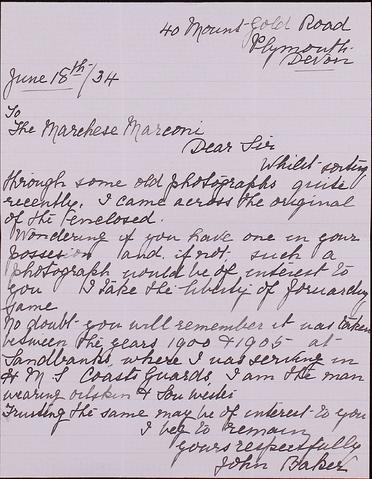 40 Mount Gold Road
Plymouth
Devon
June 18th/34
To
The Marchese Marconi
Dear Sir
Whilst sorting
through some old photographs quite
recently, I came across the original
of the enclosed.
Wondering if you have one in your
possession and if not, such a
photograph would be of interest to
you I take the liberty of forwarding
same
No doubt you will remember it was taken
between the years 1900 & 1905 at
Sandbanks, where I was serving in
H M S Coast Guards, I am the man
wearing oilskin & Sou wester
Trusting the same may be of interest to you
I beg to remain
yours respectfully
John Baker